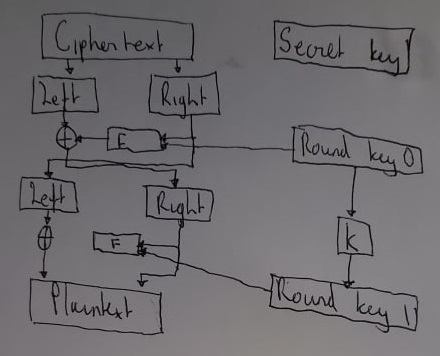 Ciphertext
Secret key
Left
Right
F
Round key 0
Left
Right
K
F
Plaintext
Round key 1